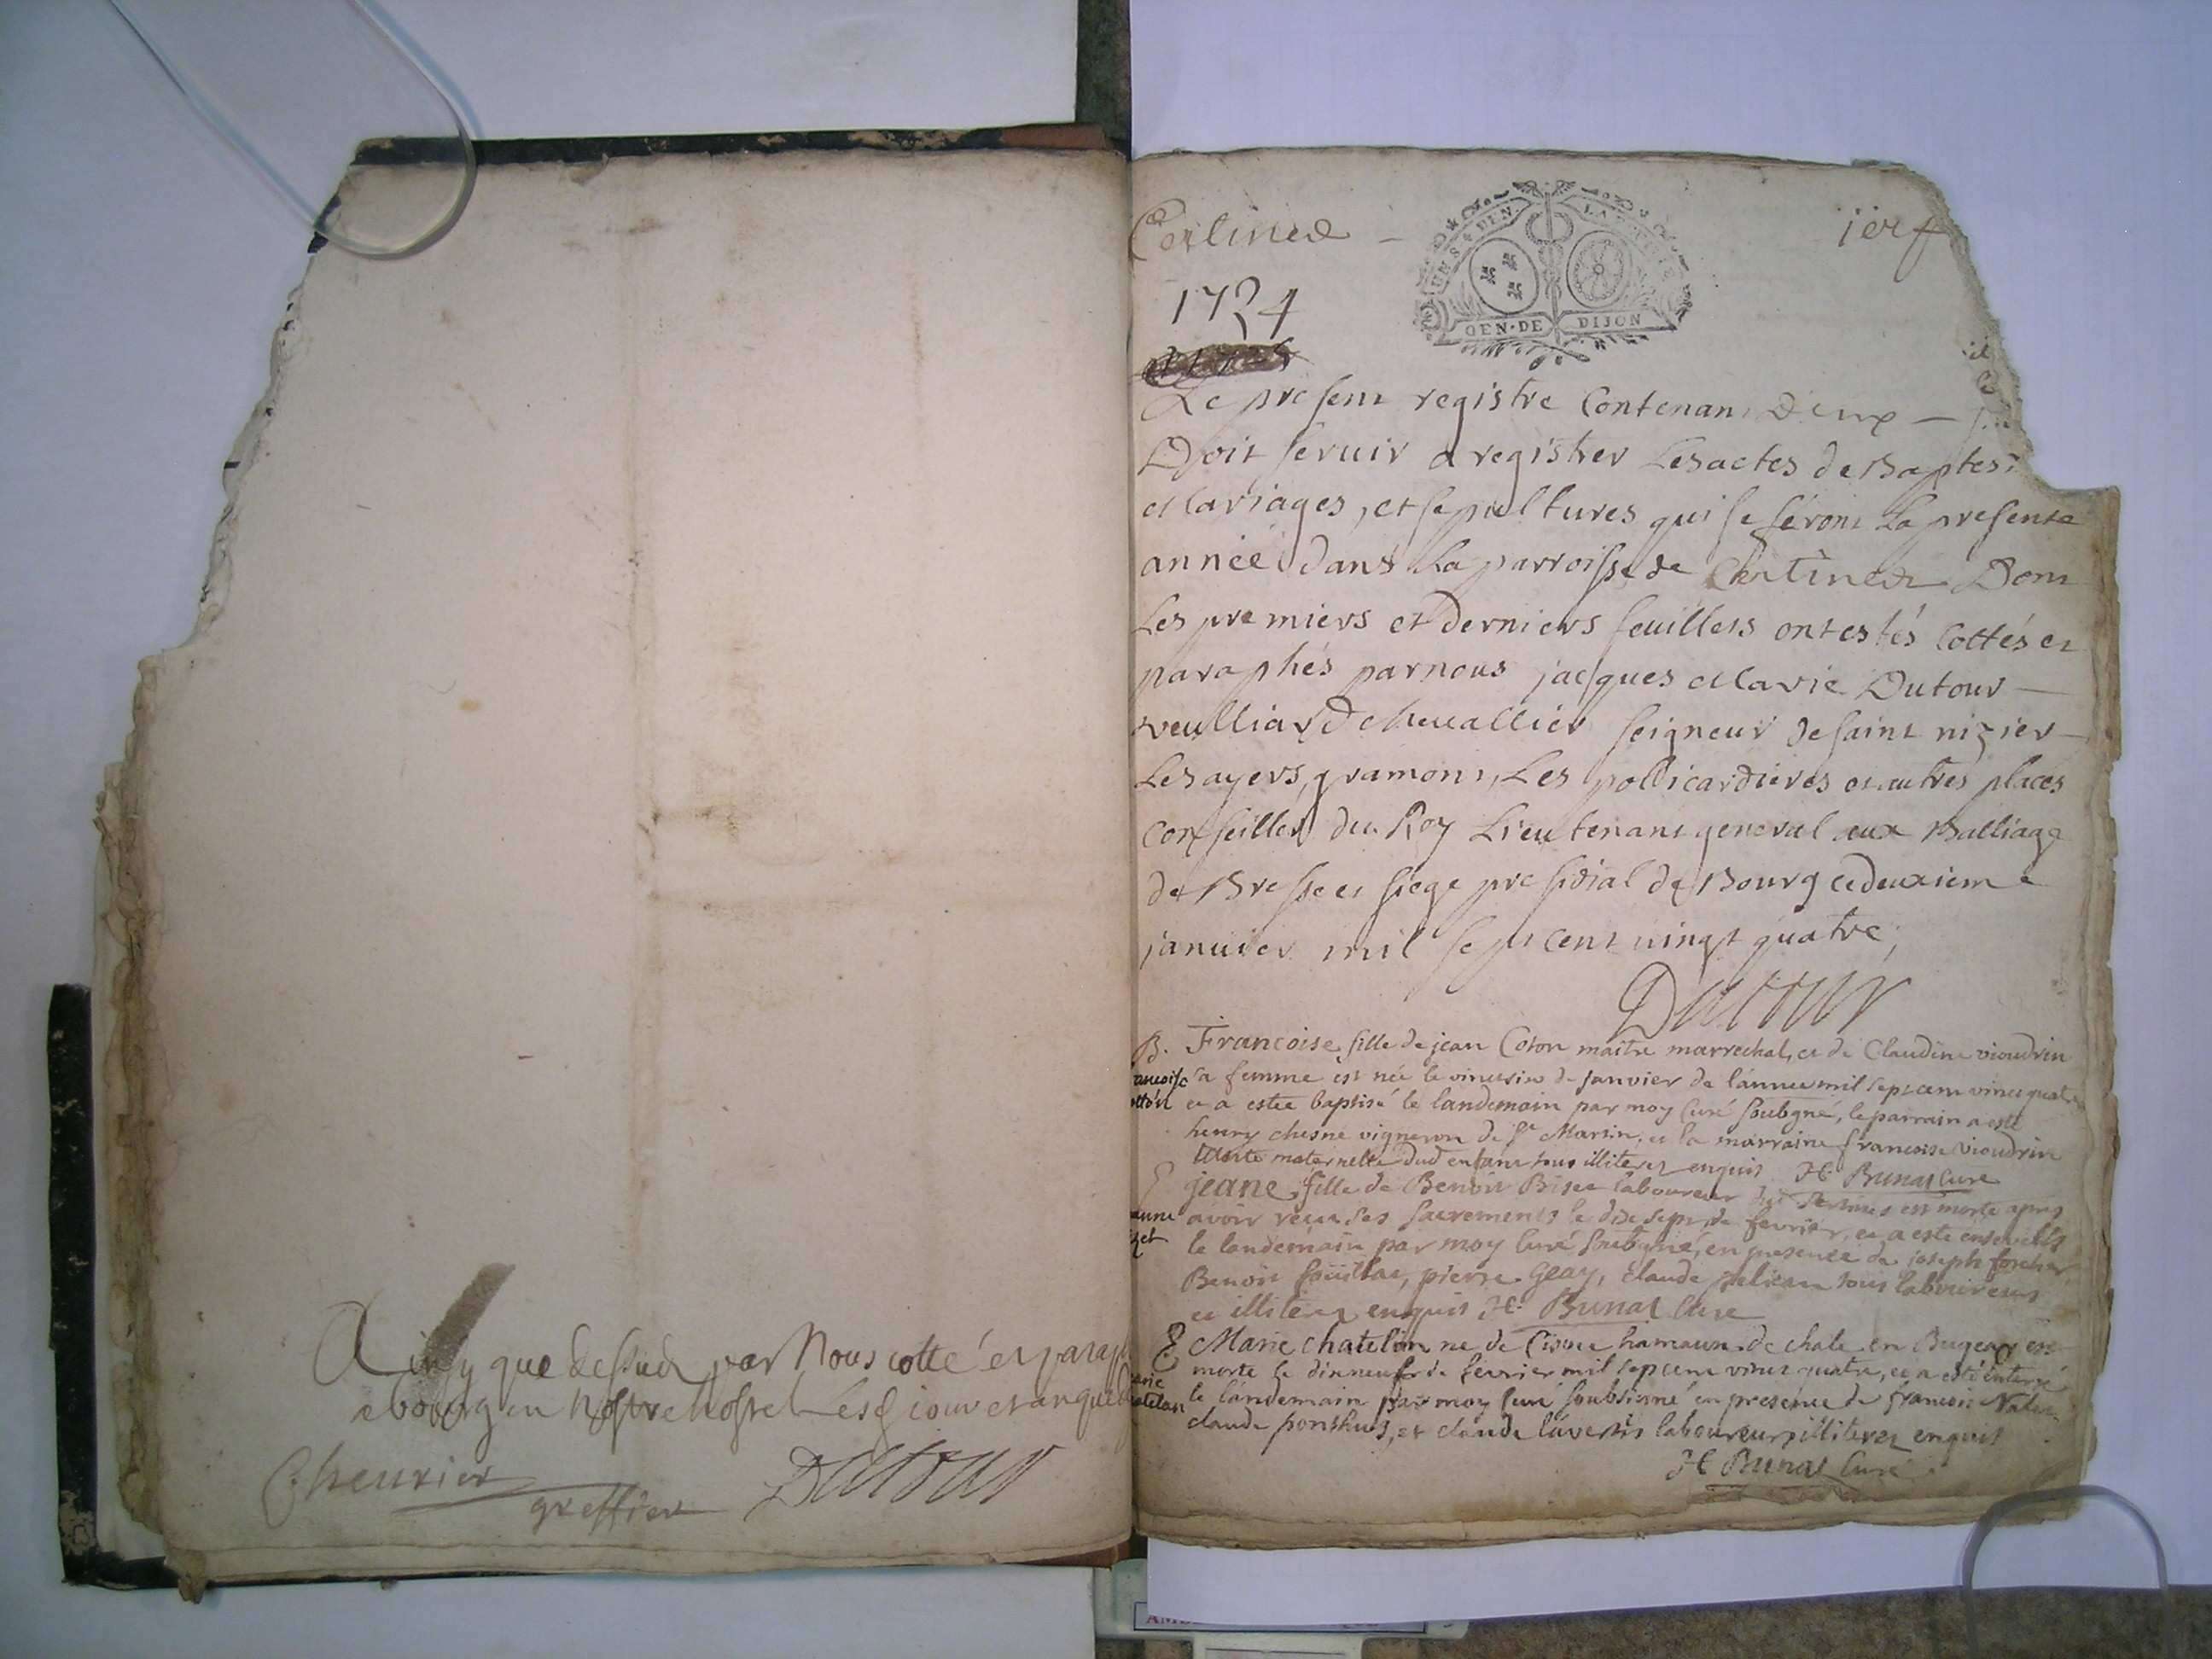 Ainsy que dessus par Nous cotté et paraph
a bourg en nostre hostel les jour et an que d
Cheurier
greffier Dutour
Certines
ier f
1724
GEN·DE DIJON
Le present registre Contenant Deux
Doit seruir a registrer Les actes de Baptes
Mariages, et sepultures qui se feront La presente
année dans La parroisse de Certines Dont
Les premiers et derniers feuillets ont estés Cottés et
paraphés par nous jacques Marie Dutour
veulliard Cheuallier seigneur de saint nizier
Les ayers, gramont, Les pollicardieres et autres places
Conseiller du Roy Lieutenant general aux Balliage
de Bresse et siege presidial de Bourg ce deuxieme
januier mil sept cent vingt quatre;
Dutour
B. Francoise fille de jean Coton maitre marrechal, et de Claudine vioudrin
sa femme est née le vint six de janvier de l'annee mil sept cent vint quatre
et a estee baptisé le landemain par moy Curé soubgné, le parrain a esté
henry chesne vigneron de st Martin, et la marraine francoise vioudrin
tante maternelle dud enfant tous illiterez enquis H. Bunat Curé
jeane fille de Benoit Biset laboureur est morte apres
avoir receu ses sacrements le dix sept de fevrier, et a esté ensevelis
le landemain par moy Curé soubgné, en presence de joseph
Benoit pierre Geay, Claude tous laboureurs
et illiterez enquis H. Bunat Curé
E Marie chatelon ne de hamaux de chale en Bugeay est
morte le dinneuf de fevrier mil sept cent vint quatre, et a esté enterré
le landemain par moy Curé soubsigné en presence de francois
claude ponthus, et claude laboureurs illiterez enquis
H Bunat Curé